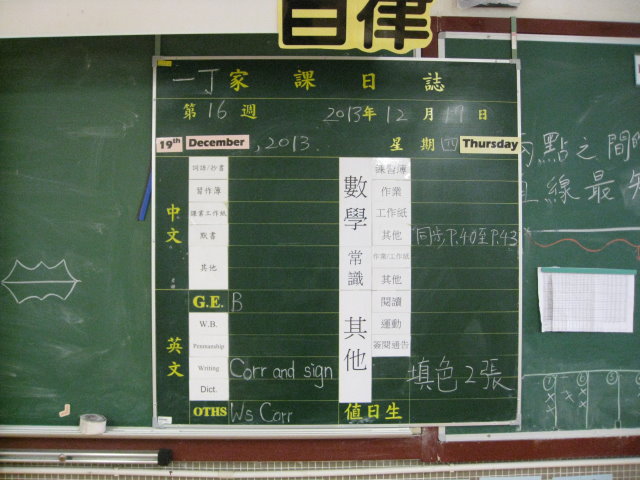 自律
一丁家課日誌
第16週 2013年12月19日
19th December, 2013. 星期四 Thursday
中文
詞語/抄書
習作簿
課業工作紙
默書
其他
G.E. B
英文
W.B.
Penmanship
Writing Corr and sign
Dict.
OTHS Ws Corr
數學
練習簿
作業
工作紙
其他 同步P.40至P.43
常識
作業/工作紙
其他
其他
閱讀
運動
簽閱通告
填色2張
值日生
兩點之間
直線最